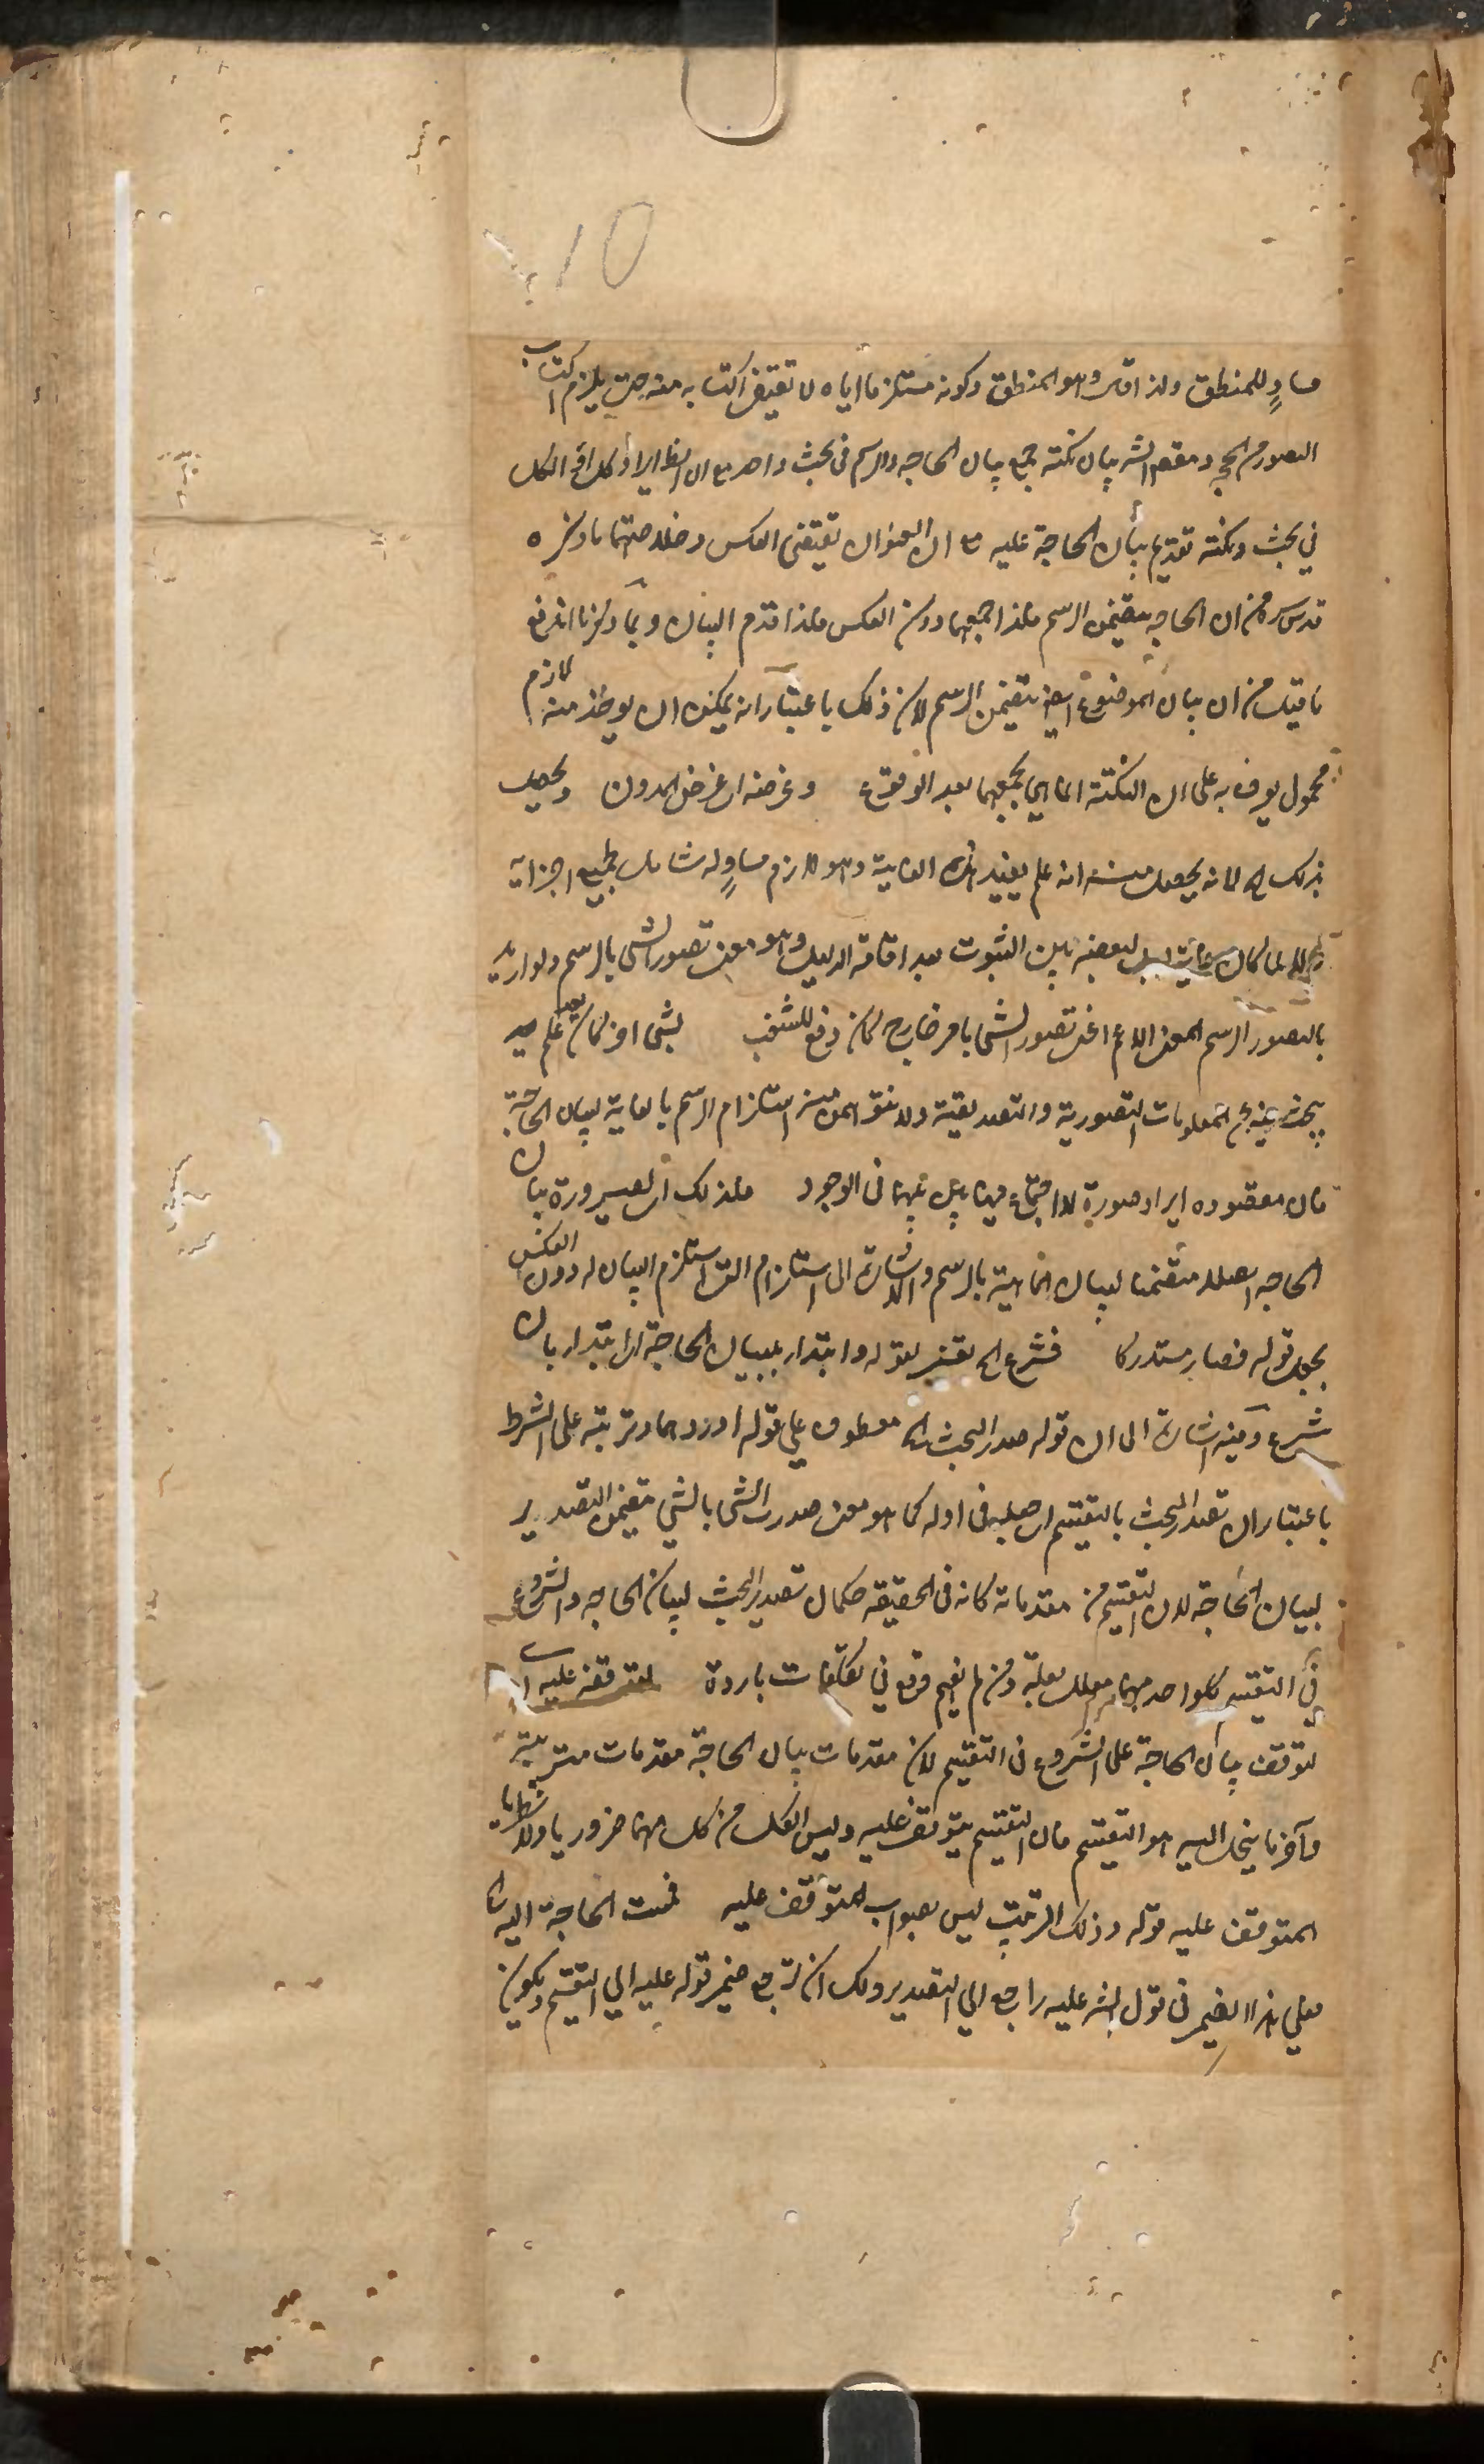 10
مساوٍ للمنطق ولذا قال وهو المنطق وكونه مستلزما اياه لا تقتضى اكتسابه منه حتى يلزم اكتساب
التصور من الحجج ومقصد الشه بيان نكتة جمع بيان الحاجة والرسم فى بحث واحد مع ان الظ ايراد كل
في بحث ونكتة تقديم بيان الحاجة عليه مع ان العنوان تقتضى العكس وخلاصتهما ما ذكره
قدس سره من ان الحاجة يتضمن الرسم فلذا جمعهما دون العكس فلذا قدم البيان وبما ذكرنا اندفع
ما قيل من ان بيان الموضوع ايضا يتضمن الرسم لان ذلك باعتبار انه يمكن ان يوخذ منه لازم
محمول يعرف به على ان النكتة انما هي لجمعهما بعد الوقوع وغرضه اى غرض المدون ويحصل
بذلك الخ لانه يحصل منه انه علم يفيد هذه الغاية وهو لازم مساوٍ له شامل لجميع اجزائه
لما كان بين الثبوت بعد اقامة الدليل وهو معنى تصور الشى بالرسم ولو اريد
بالتصور الرسم المعنى الاعم اعنى تصور الشى بامر خارج كان دفع للشغب بشى اخر كان يعد علم
يبحث فيه عن المعلومات التصورية والتصديقية ولا استلزام الرسم بالغاية لبيان الحاجة
فان مقصوده ايراد صورة الاجتماع فيما بينهما فى الوجود فلذلك اى لصيرورة بيان
الحاجة اصلا متضمنا لبيان الماهية بالرسم والاشارة الى استلزام البيان له دون العكس
يجعل قوله فصار مستدركا فشرع الخ تفسير لقوله وابتداء ببيان الحاجة اى ابتداء بان
شرع وفيه اشارة الى ان قوله صدر البحث الخ معطوف على قوله اوردهما وترتبه على الشرط
باعتبار ان تصدير البحث بالتقسيم اى جعله فى اوله كما هو معنى صدرت الشى بالشى يتضمن التصدير
لبيان الحاجة لان التقسيم من مقدماته كانه فى الحقيقة حكمان تصدير البحث لبيان الحاجة والشروع
في التقسيم وكل واحد منهما معلل بعلة ومن لم يفهم وقع في تكلفات باردة لتوقفه عليه اى
لتوقف بيان الحاجة على الشروع فى التقسيم لان مقدمات بيان الحاجة مقدمات مترتبة
وآخر ما ينحل اليه هو التقسيم فان التقسيم يتوقف عليه وليس الكل من كل منهما ضروريا ولا نظريا
المتوقف عليه قوله وذلك الترتيب ليس بصواب المتوقف عليه فمست الحاجة اليه الخ
فعلى هذا الضمير فى قول الشه عليه راجع الى التصدير ولك ان ترجع ضمير قوله عليه الى التقسيم ويكون